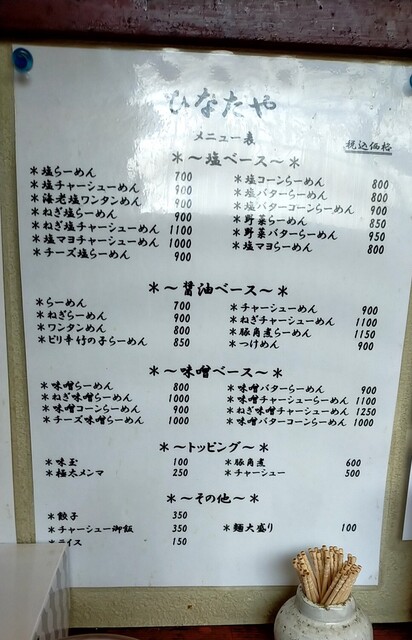 ひなたや
メニュー表
税込価格
＊～塩ベース～＊
＊塩らーめん 700
＊塩チャーシューめん 900
＊海老塩ワンタンめん 900
＊ねぎ塩らーめん 900
＊ねぎ塩チャーシューめん 1100
＊塩マヨチャーシューめん 1000
＊チーズ塩らーめん 900
＊塩コーンらーめん 800
＊塩バターらーめん 800
＊塩バターコーンらーめん 900
＊野菜らーめん 850
＊野菜バターらーめん 950
＊塩マヨらーめん 800
＊～醤油ベース～＊
＊らーめん 700
＊ねぎらーめん 900
＊ワンタンめん 800
＊ピリ辛竹の子らーめん 850
＊チャーシューめん 900
＊ねぎチャーシューめん 1100
＊豚角煮らーめん 1150
＊つけめん 900
＊～味噌ベース～＊
＊味噌らーめん 800
＊ねぎ味噌らーめん 1000
＊味噌コーンらーめん 900
＊チーズ味噌らーめん 1000
＊味噌バターらーめん 900
＊味噌チャーシューらーめん 1100
＊ねぎ味噌チャーシューめん 1250
＊味噌バターコーンらーめん 1000
＊～トッピング～＊
＊味玉 100
＊極太メンマ 250
＊豚角煮 600
＊チャーシュー 500
＊～その他～＊
＊餃子 350
＊チャーシュー御飯 350
＊ライス 150
＊麺大盛り 100